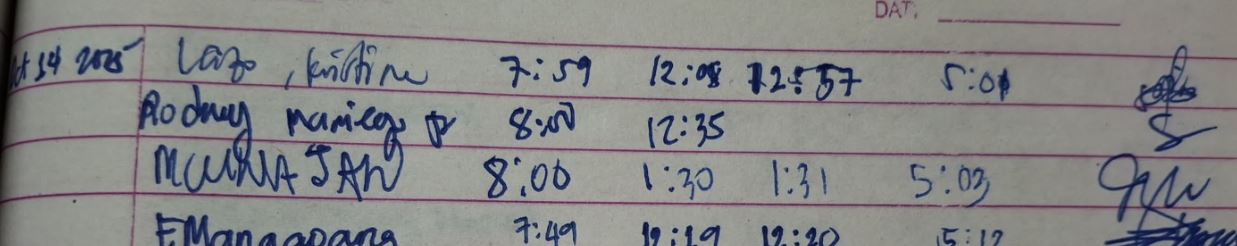 DAT.
Oct 14 2025 Lazo, Kristine 7:59 12:08 12:57 5:01
Rodney 8:00 12:35
JAN 8:00 1:30 1:31 5:03
7:49 12:19 12:20 5:12